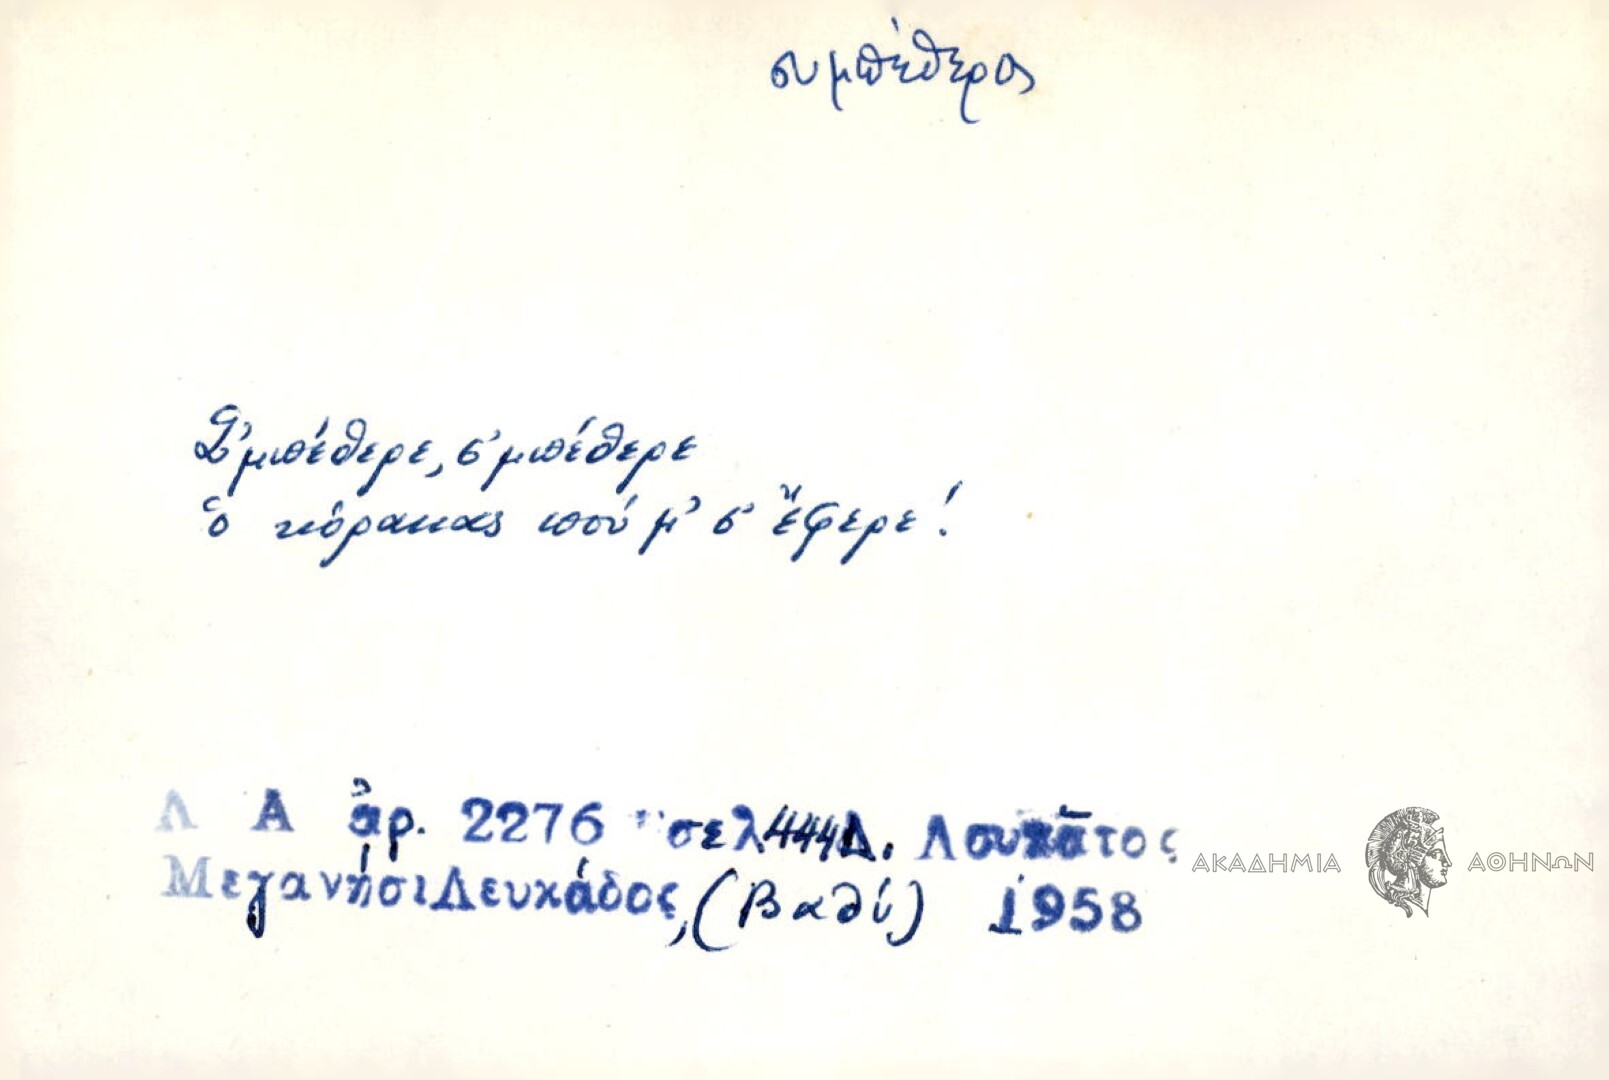 συμπέθερος
Σ'μπέθερε, σ'μπέθερε
ὁ κόρακας πού μ' σ' ἔφερε!
Λ Α ἀρ. 2276 σελ. 444 Δ. Λουκᾶτος
Μεγανήσι Λευκάδος, (Βαθύ) 1958
ΑΚΑΔΗΜΙΑ ΑΘΗΝΩΝ